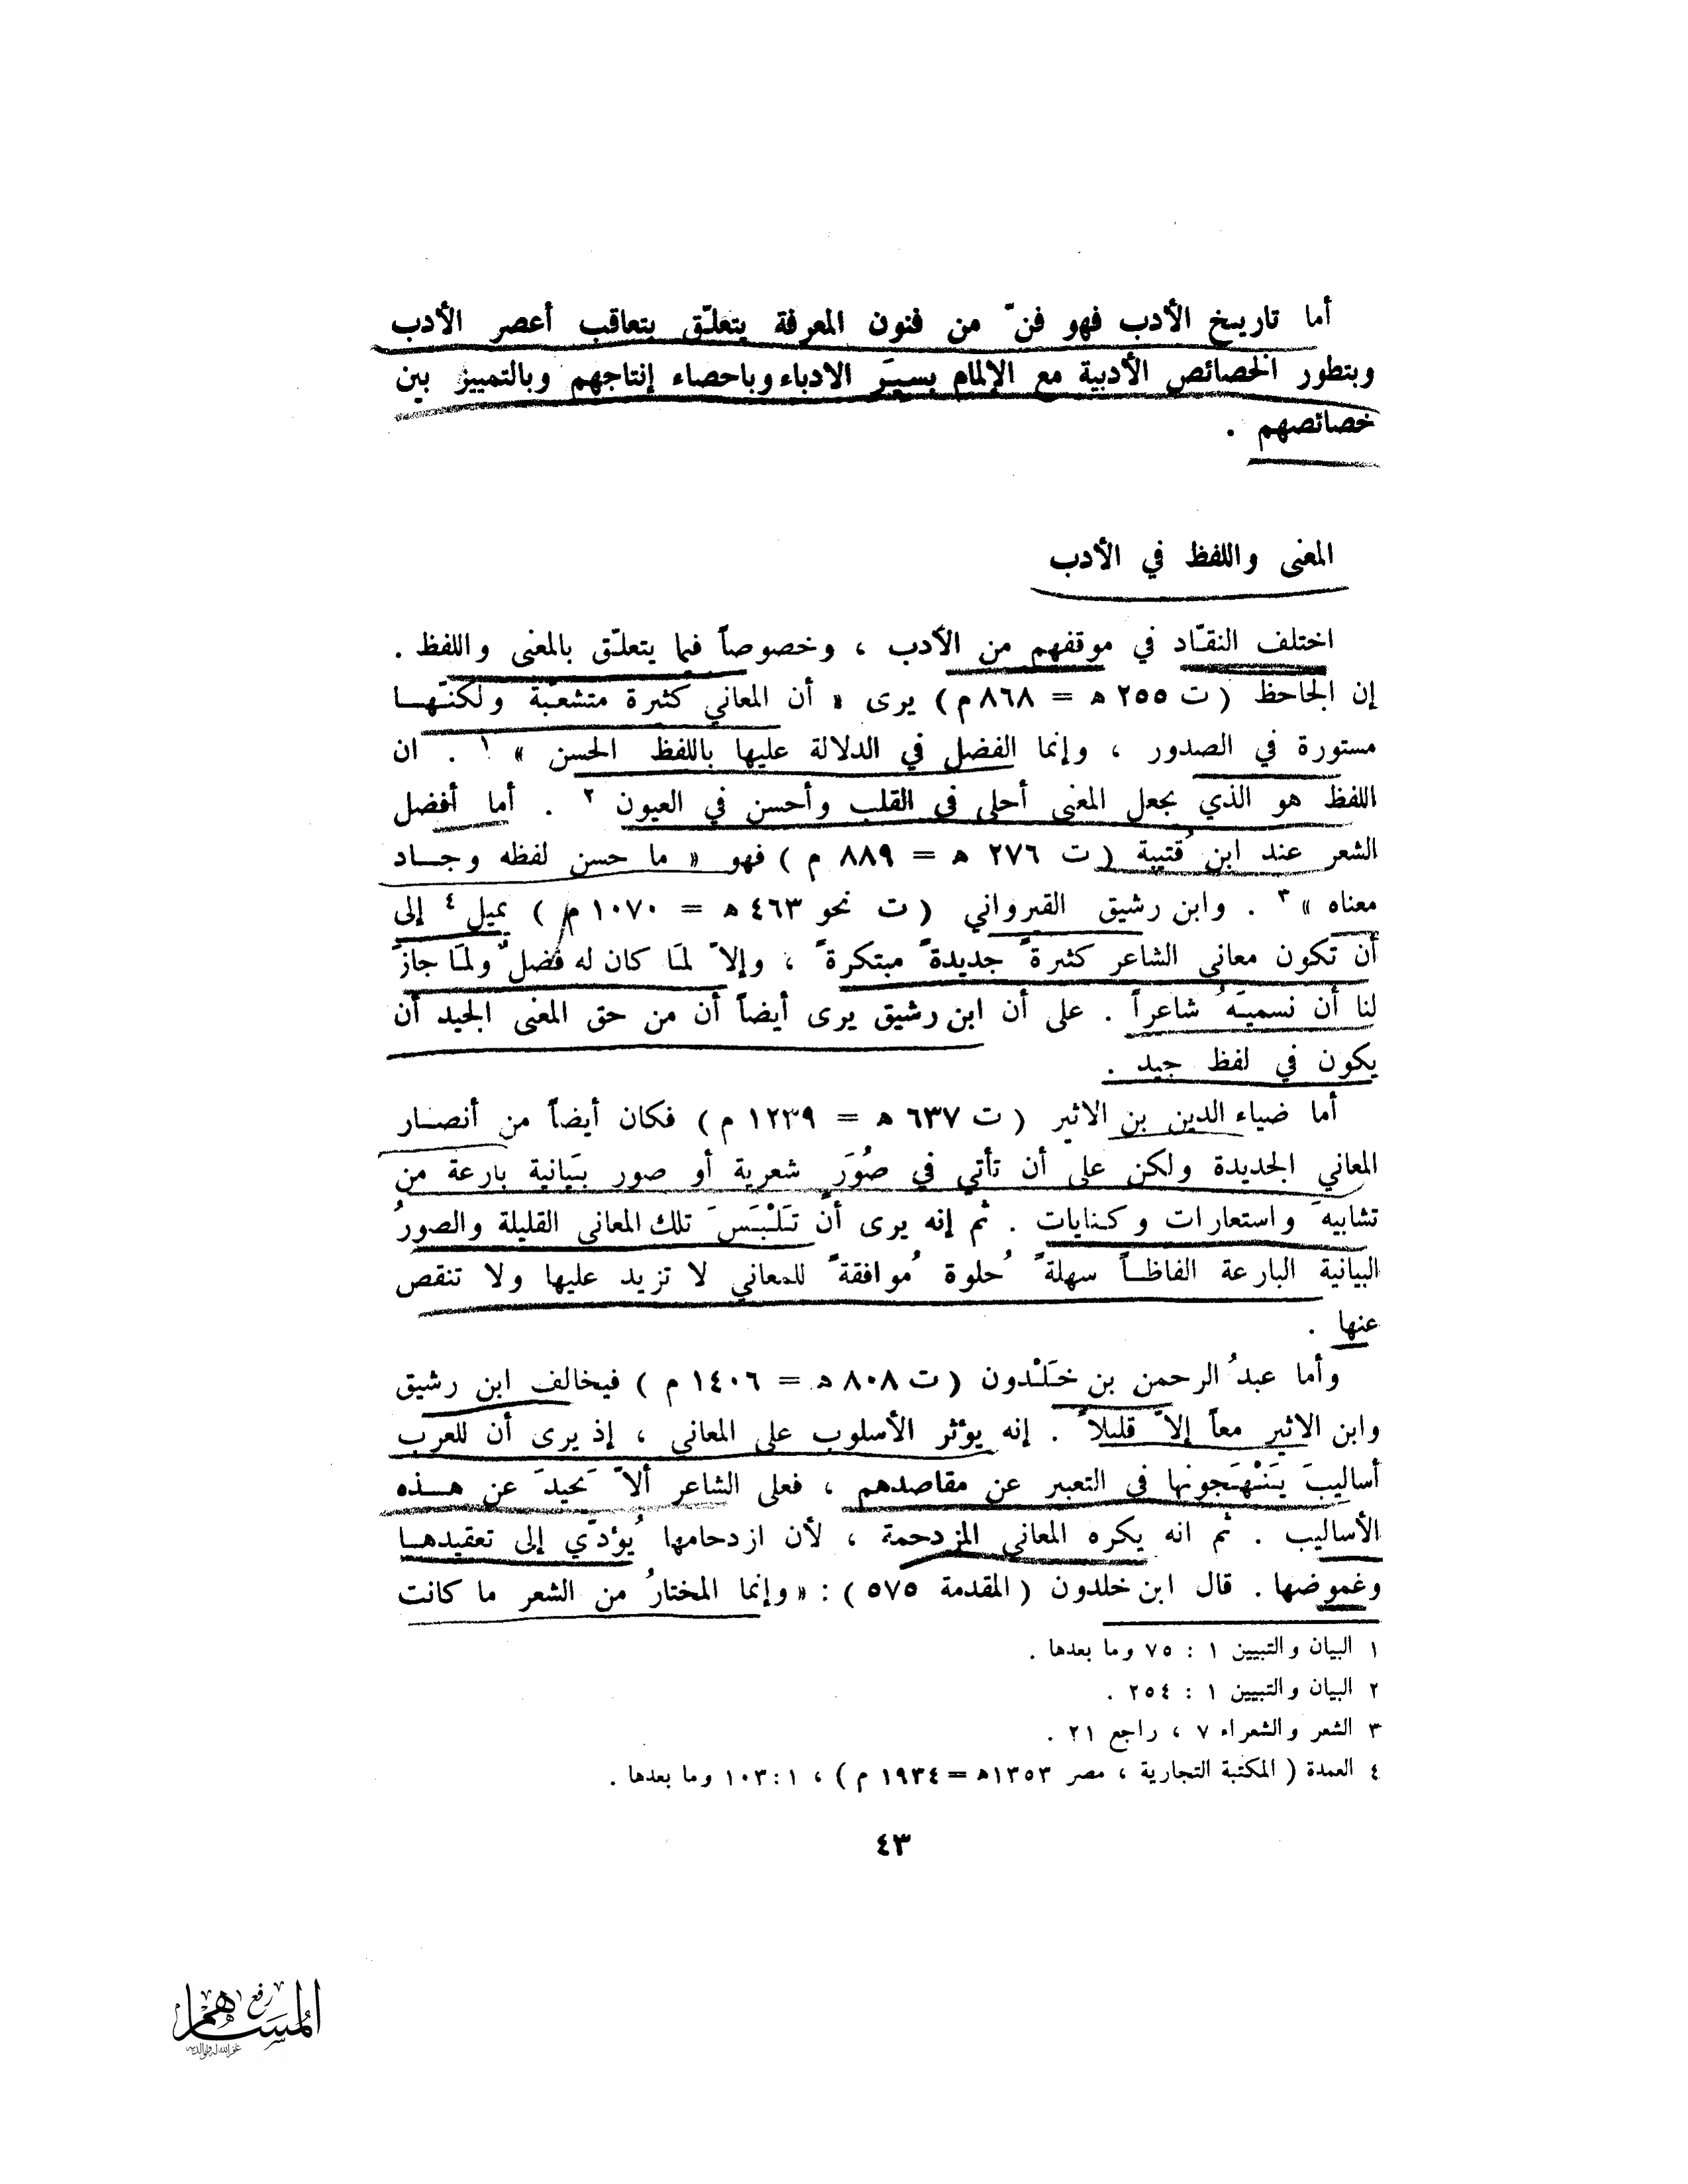 أما تاريخ الأدب فهو فنّ من فنون المعرفة يتعلّق بتعاقب أعصر الأدب
وبتطور الخصائص الأدبية مع الإلمام بسيَر الادباء وباحصاء إنتاجهم وبالتمييز بين
خصائصهم .
المعنى واللفظ في الأدب
اختلف النقّاد في موقفهم من الأدب ، وخصوصاً فيما يتعلّق بالمعنى واللفظ .
إن الجاحظ ( ت ٢٥٥ ه = ٨٦٨ م ) يرى « أن المعاني كثيرة متشعّبة ولكنّهـا
مستورة في الصدور ، وإنما الفضل في الدلالة عليها باللفظ الحسن » ١ . ان
اللفظ هو الذي يجعل المعنى أحلى في القلب وأحسن في العيون ٢ . أما أفضل
الشعر عند ابن قُتيبة ( ت ٢٧٦ ه = ٨٨٩ م ) فهو « ما حسن لفظه وجـاد
معناه » ٣ . وابن رشيق القيرواني ( ت نحو ٤٦٣ ه = ١٠٧٠ م ) يميل ٤ إلى
أن تكون معاني الشاعر كثيرةً جديدةً مبتكرةً ، وإلاّ لمَا كان له فضلٌ ولمَا جازَ
لنا أن نسميَهُ شاعراً . على أن ابن رشيق يرى أيضاً أن من حق المعنى الجيد أن
يكون في لفظ جيد .
أما ضياء الدين بن الاثير ( ت ٦٣٧ ه = ١٢٣٩ م ) فكان أيضاً من أنصـار
المعاني الجديدة ولكن على أن تأتي في صُوَرٍ شعرية أو صور بيَانية بارعة من
تشابيهَ واستعارات وكنايات . ثم إنه يرى أن تَلْبَسَ تلك المعاني القليلة والصورُ
البيانية البارعة الفاظـاً سهلةً حُلوة مُوافقةً للمعاني لا تزيد عليها ولا تنقص
عنها .
وأما عبدُ الرحمن بن خَلْدون ( ت ٨٠٨ ه = ١٤٠٦ م ) فيخالف ابن رشيق
وابن الاثير معاً إلاّ قليلاً . إنه يؤثر الأسلوب على المعاني ، إذ يرى أن للعرب
أساليبَ يَنْهَجونها في التعبير عن مقاصدهم ، فعلى الشاعر ألاّ يَحيدَ عن هـذه
الأساليب . ثم انه يكره المعاني المزدحمة ، لأن ازدحامها يُؤدّي إلى تعقيدهـا
وغموضها . قال ابن خلدون ( المقدمة ٥٧٥ ) : « وإنما المختارُ من الشعر ما كانت
١ البيان والتبيين ١ : ٧٥ وما بعدها .
٢ البيان والتبيين ١ : ٢٥٤ .
٣ الشعر والشعراء ٧ ، راجع ٢١ .
٤ العمدة ( المكتبة التجارية ، مصر ١٣٥٣ه = ١٩٣٤ م ) ، ١ : ١٠٣ وما بعدها .
٤٣
رفع
المساهم
غفر الله له ولوالديه